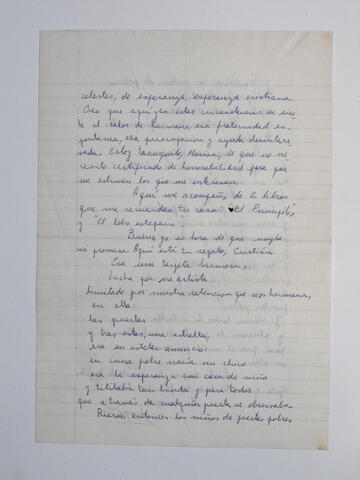 celestes, de esperanza, esperanza cristiana.
Creo que aquí, en estas circunstancias, se sien-
te el calor de hermano, esa fraternidad es-
pontánea, esa preocupación y ayuda desintere-
sada. Estoy tranquilo, de que no ne-
cesito certificado de honorabilidad para que
me estimen los que me interesan.
Aquí me acompañan 2 libros
que me recuerdan tu casa: "El Principito"
y "El lobo estepario"
Bueno ya es hora de que cumpla
mi promesa. Aquí está tu regalo, Cristián
Era una tarjeta hermosa,
hecha por un artista
limitado por nuestra retención que nos hermana,
en ella:
las puertas
y tras estas, una estrella,
era un estelar anuncio:
en cuna pobre nacía un chico
era la esperanza con cara de niño
y titilaba tan linda y para todos
que a través de cualquier puerta se observaba.
Rieron entonces los niños de puertas pobres